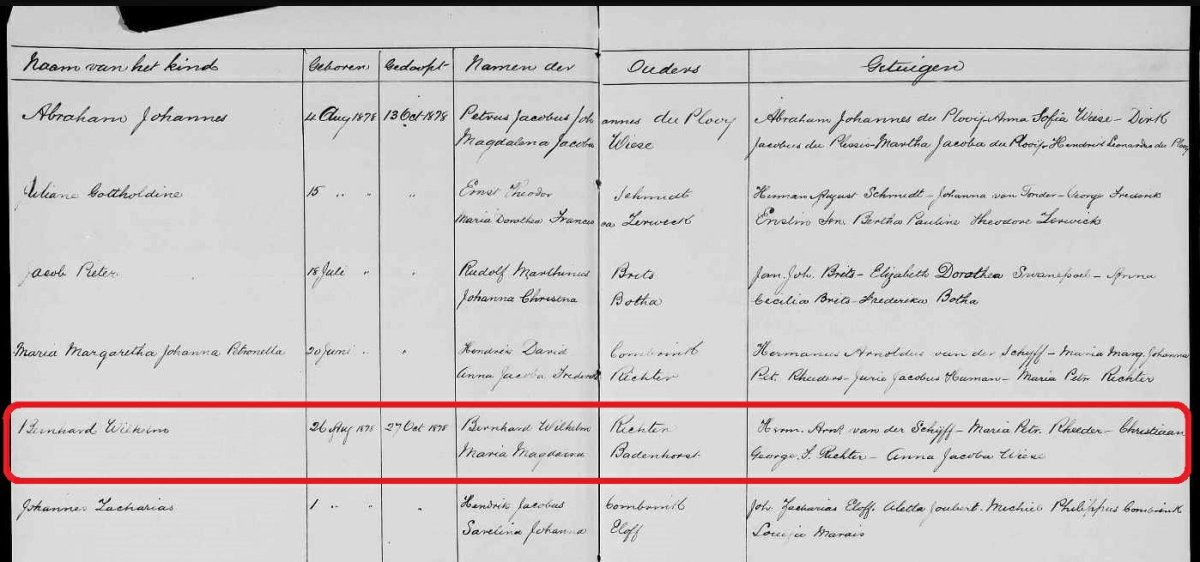 Naam van het kind Geboren Gedoopt Namen der Ouders Getuigen
Abraham Johannes 4 Aug 1878 13 Oct 1878 Petrus Jacobus Joh annes du Plooij Abraham Johannes du Plooij - Anna Sofia Wiese - Dirk
Magdalena Jacoba Wiese Jacobus du Plessis - Martha Jacoba du Plooij - Hendrik Leonardus du Plooij
Juliane Gottholdine 15 " " " Ernst Theodor Schmidt Herman August Schmidt - Johanna van Tonder - George Frederik
Maria Dorothea Francis ca Lerwick Enslin Snr. Bertha Pauline Theodore Lerwick
Jacob Pieter 18 Juli " " Rudolf Marthinus Brits Jan. Joh. Brits - Elizabeth Dorothea Swanepoel - Anna
Johanna Christina Botha Cecilia Brits - Frederika Botha
Maria Margaretha Johanna Petronella 20 Juni " " Hendrik David Combrink Hermanus Arnoldus van der Schyff - Maria Marg. Johanna
Anna Jacoba Frederik Richter Pet. Rheeders - Jurie Jacobus Human - Maria Petr. Richter
Bernhard Wilhelm 26 Aug 1878 27 Oct 1878 Bernhard Wilhelm Richter Herm. Arn. van der Schijff - Maria Petr. Rheeder - Christiaan
Maria Magdalena Badenhorst George S. Richter - Anna Jacoba Wiese
Johannes Zacharias 1 " " " Hendrik Jacobus Combrink Joh. Zacharias Eloff. Aletta Joubert. Michiel Philippus Combrink
Sarelina Johanna Eloff Louisa Marais